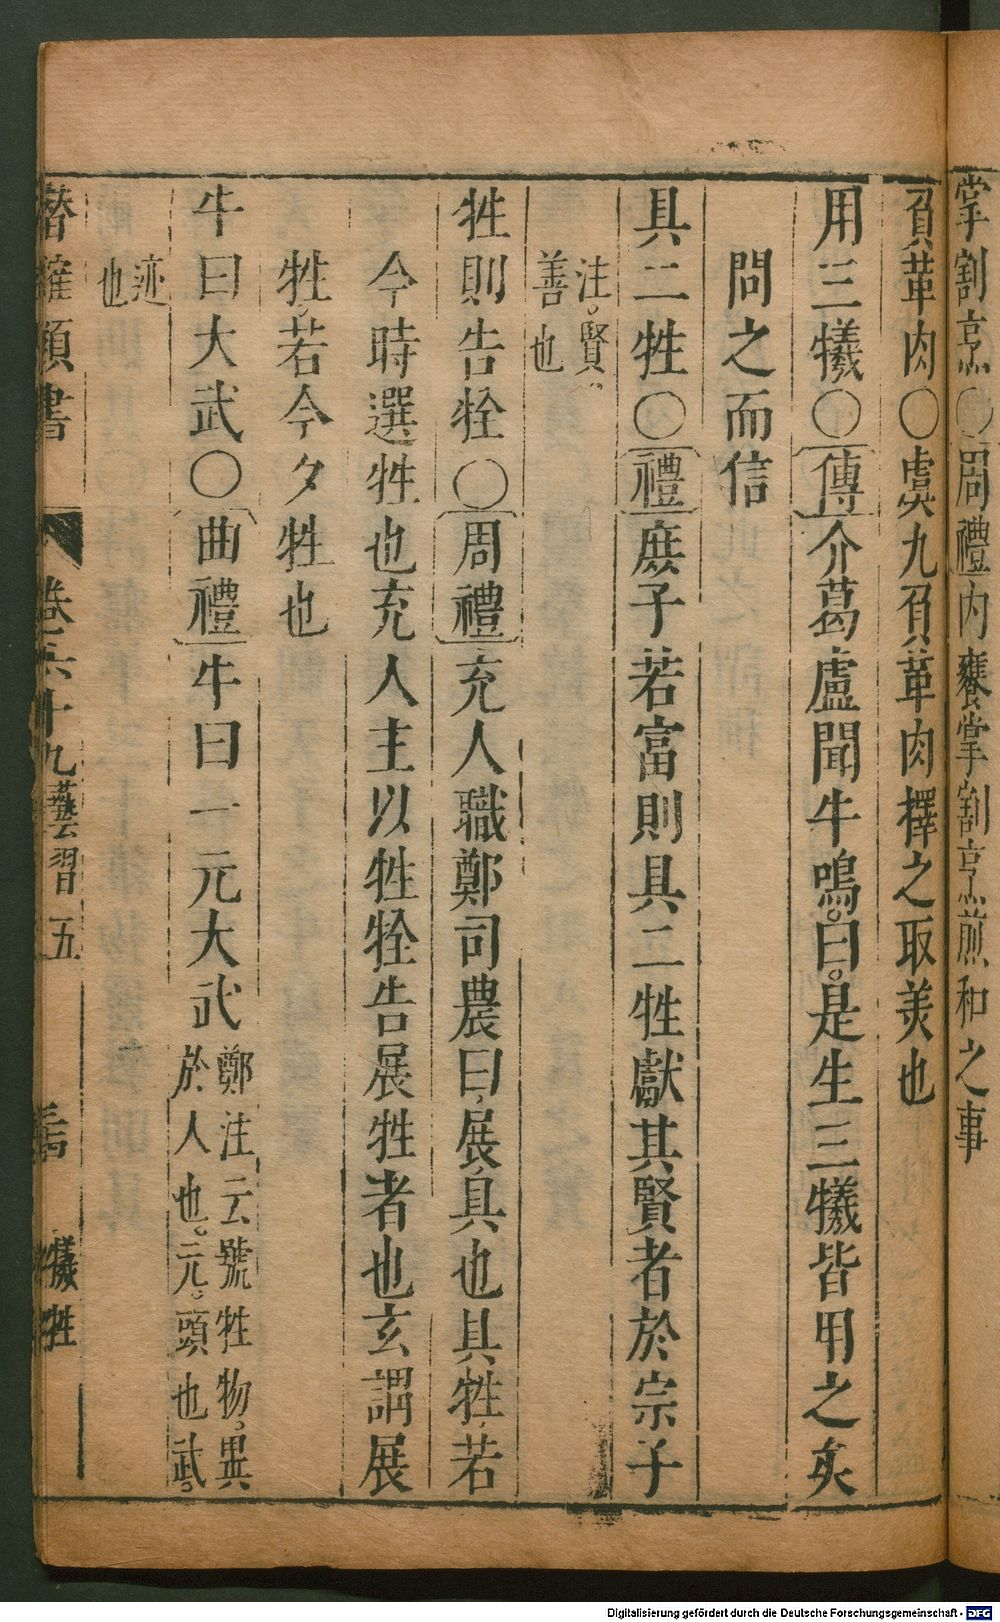 掌割烹○周禮內饔掌割烹煎和之事
負革肉○虞九負革肉擇之取美也
用三犧○傳介葛盧聞牛鳴曰是生三犧皆用之矣
問之而信
具二牲○禮庶子若富則具二牲獻其賢者於宗子
注。賢。
善也
牲則告牷○周禮充人職鄭司農曰展具也具牲若
今時選牲也充人主以牲牷告展牲者也玄謂展
牲若今夕牲也
牛曰大武○曲禮牛曰一元大武
鄭注云號牲物。異
於人也。元。頭也武。
迹
也
卷六十九 藝習五
犧牲
Digitalisierung gefördert durch die Deutsche Forschungsgemeinschaft - DFG